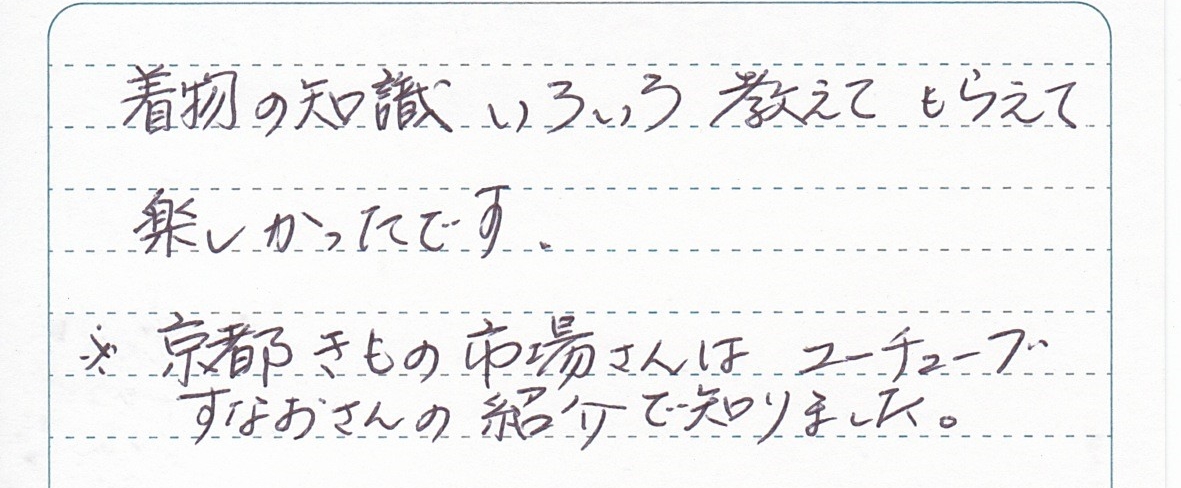 着物の知識 いろいろ 教えて もらえて
楽しかったです.
※ 京都きもの市場さんは ユーチューブ
すなおさんの紹介で知りました。